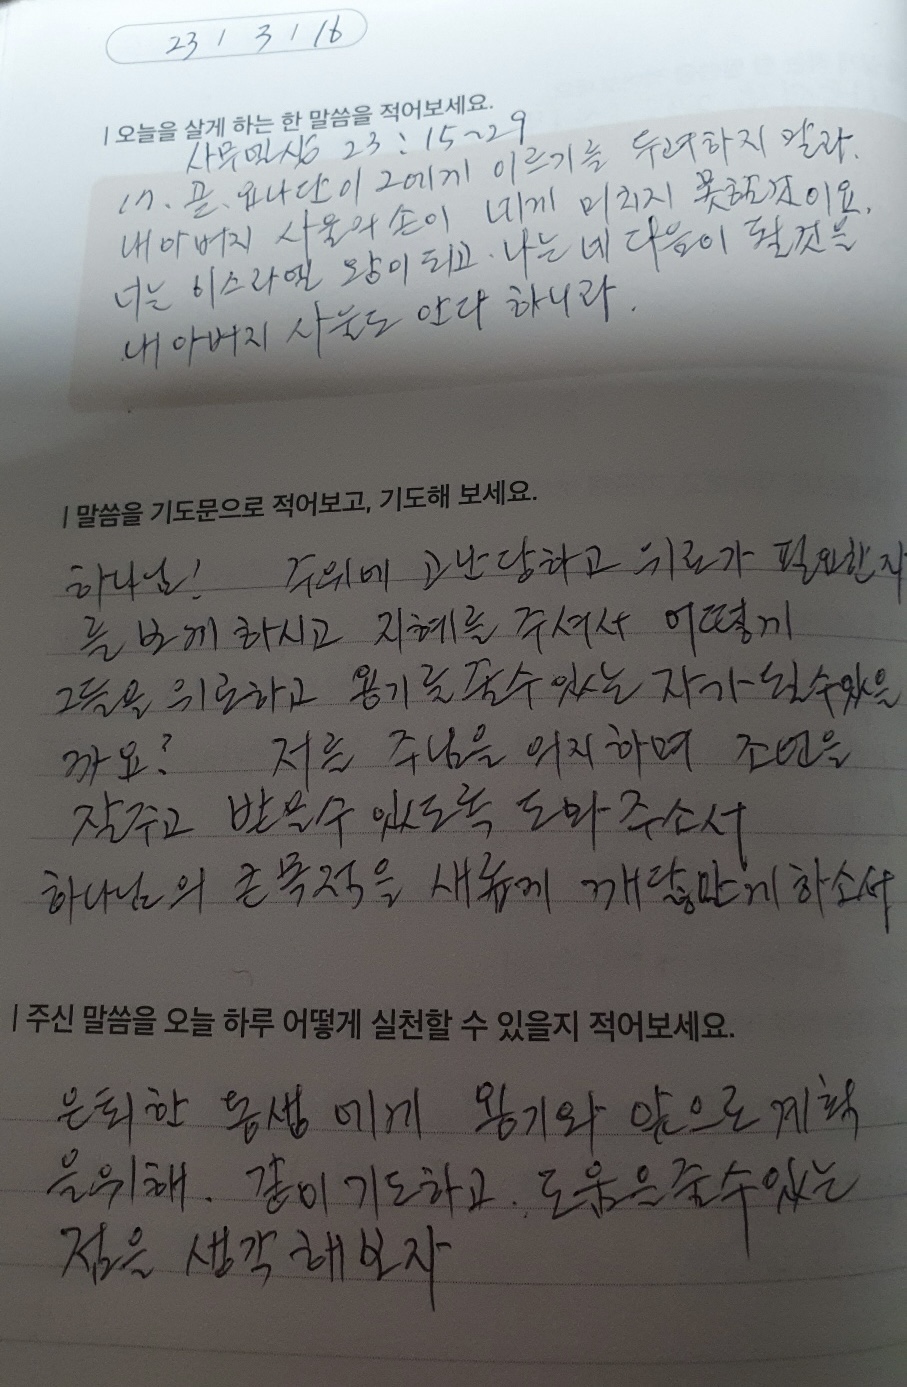 23 / 3 / 16
| 오늘을 살게 하는 한 말씀을 적어보세요.
사무엘상 23 : 15~29
17. 곧 요나단이 그에게 이르기를 두려하지 말라.
내 아버지 사울의 손이 네게 미치지 못할것이요,
너는 이스라엘 왕이 되고. 나는 네 다음이 될것을
내 아버지 사울도 안다 하니라.
| 말씀을 기도문으로 적어보고, 기도해 보세요.
하나님! 주위에 고난당하고 위로가 필요한자
를 보게 하시고 지혜를 주셔서 어떻게
그들을 위로하고 용기를 줄수있는 자가 될수있을
까요? 저를 주님을 의지하며 조언을
잘주고 받을수 있도록 도와 주소서
하나님의 큰목적을 새롭게 깨닫게하소서
| 주신 말씀을 오늘 하루 어떻게 실천할 수 있을지 적어보세요.
은퇴한 동생에게 용기와 앞으로 계획
을위해. 같이 기도하고. 도움은 줄수있는
점을 생각해보자